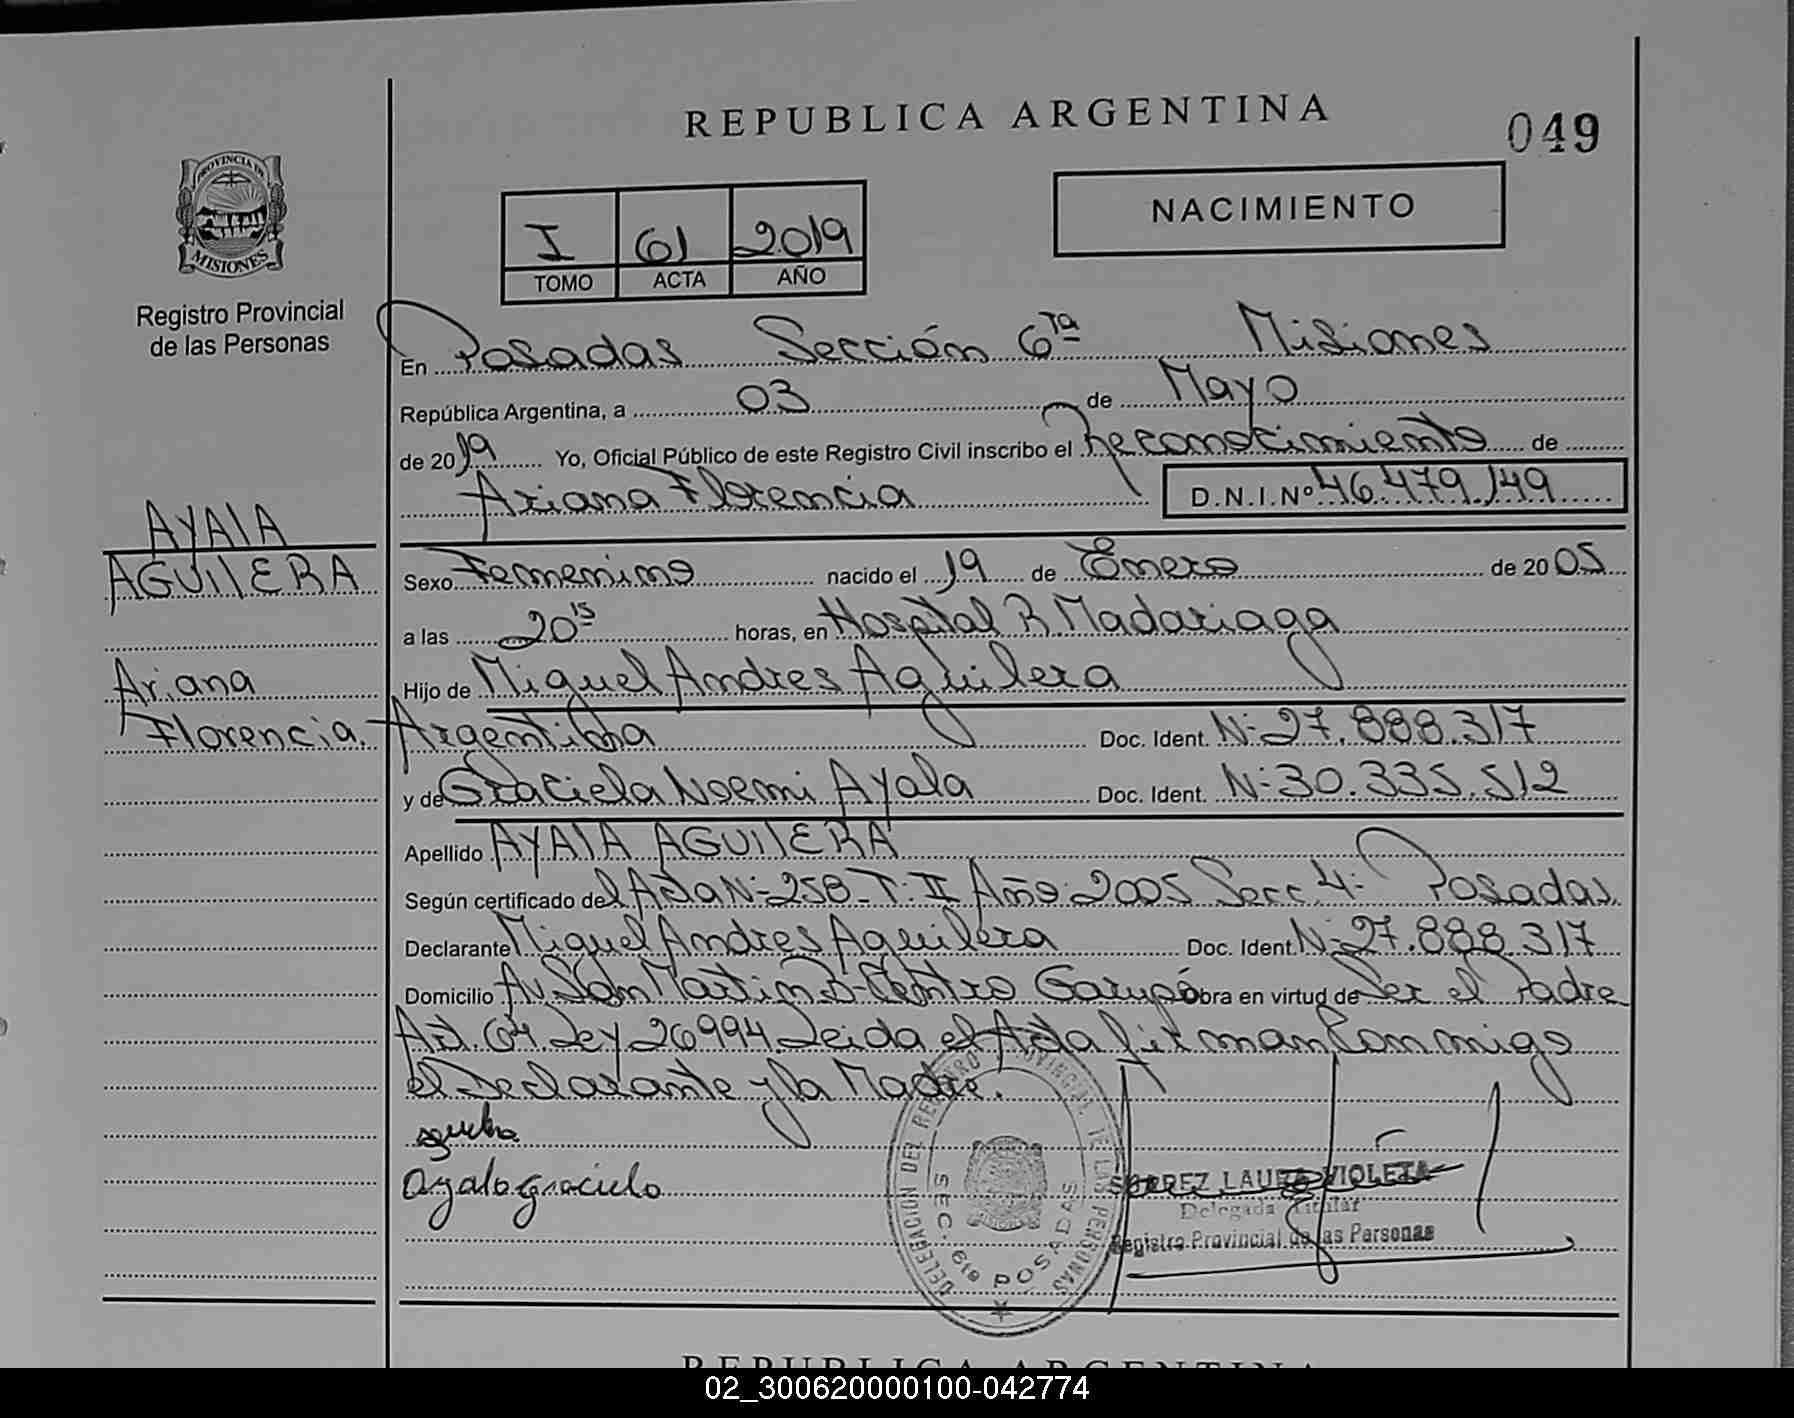 REPUBLICA ARGENTINA
049
PROVINCIA DE
MISIONES
Registro Provincial
de las Personas
I 61 2019
TOMO ACTA AÑO
NACIMIENTO
En Posadas Sección 6ta Misiones
República Argentina, a 03 de Mayo
de 2019 Yo, Oficial Público de este Registro Civil inscribo el Reconocimiento de
Ariana Florencia D.N.I.Nº 46.479.149
AYAlA
AGUIlERA
Ariana
Florencia.
Sexo Femenino nacido el 19 de Enero de 2005
a las 20 15 horas, en Hospital R. Madariaga
Hijo de Miguel Andres Aguilera
Argentina Doc. Ident. N- 27.888.317
y de Graciela Noemi Ayala Doc. Ident. N- 30.335.512
Apellido AYAlA AGUIlERA
Según certificado del Acta N- 258 - T. II Año 2005 Secc. 4- Posadas.
Declarante Miguel Andres Aguilera Doc. Ident. N- 27.888.317
Domicilio Av. San Martin Centro Garupá obra en virtud de Ser el Padre
Art. 64 Ley 26994. Leida el Acta firman Conmigo
el Declarante y la Madre.
Ayala graciela
DELEGACION DEL REGISTRO PROVINCIAL DE LAS PERSONAS
SEC. 6ta POSADAS
LAURA VIOLETA
Delegada Titular
Registro Provincial de las Personas
REPUBLICA ARGENTINA
02_300620000100-042774